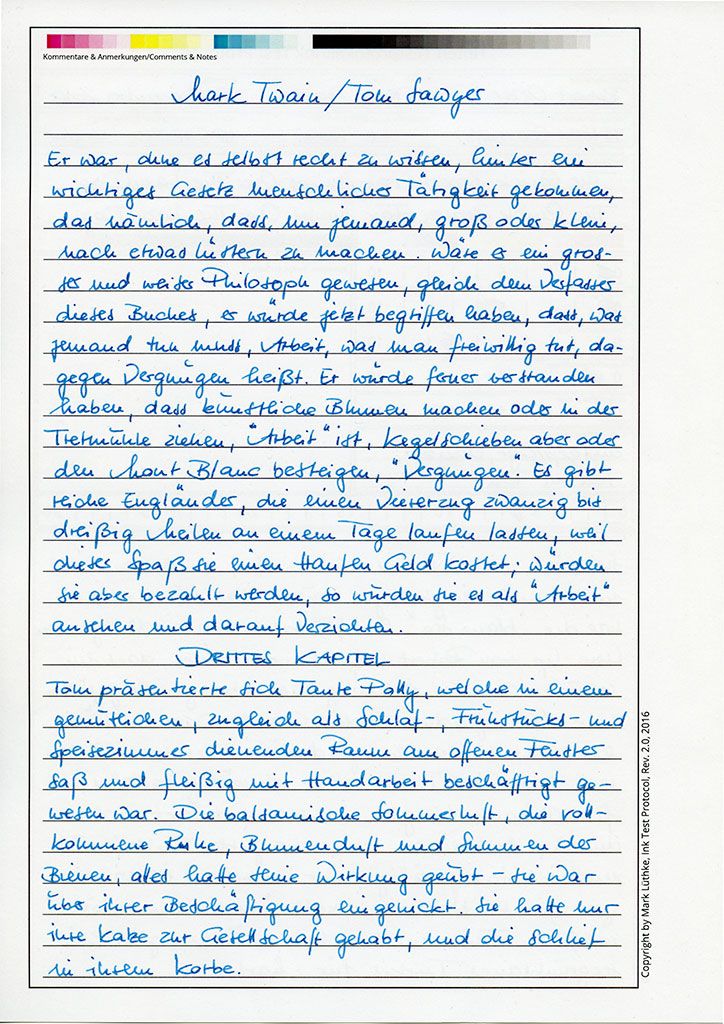 Kommentare & Anmerkungen/Comments & Notes
Mark Twain / Tom Sawyer
Er war, ohne es selbst recht zu wissen, hinter ein
wichtiges Gesetz menschlicher Tätigkeit gekommen,
das nämlich, dass, um jemand, groß oder klein,
nach etwas lüstern zu machen. Wäre er ein gros-
ser und weiser Philosoph gewesen, gleich dem Verfasser
dieses Buches, er würde jetzt begriffen haben, dass, was
jemand tun muss, Arbeit, was man freiwillig tut, da-
gegen Vergnügen heißt. Er würde ferner verstanden
haben, dass künstliche Blumen machen oder in der
Tretmühle ziehen, "Arbeit" ist, Kegelschieben aber oder
den Mont Blanc besteigen, "Vergnügen". Es gibt
reiche Engländer, die einen Viererzug zwanzig bis
dreißig Meilen an einem Tage laufen lassen, weil
dieser Spaß sie einen Haufen Geld kostet; würden
sie aber bezahlt werden, so würden sie es als "Arbeit"
ansehen und darauf verzichten.
DRITTES KAPITEL
Tom präsentierte sich Tante Polly, welche in einem
gemütlichen, zugleich als Schlaf-, Frühstücks- und
Speisezimmer dienenden Raum am offenen Fenster
saß und fleißig mit Handarbeit beschäftigt ge-
wesen war. Die balsamische Sommerluft, die voll-
kommene Ruhe, Blumenduft und Summen der
Bienen, alles hatte seine Wirkung geübt - sie war
über ihrer Beschäftigung eingenickt. Sie hatte nur
ihre Katze zur Gesellschaft gehabt, und die schlief
in ihrem Korbe.
Copyright by Mark Lüthke, Ink Test Protocol, Rev. 2.0, 2016